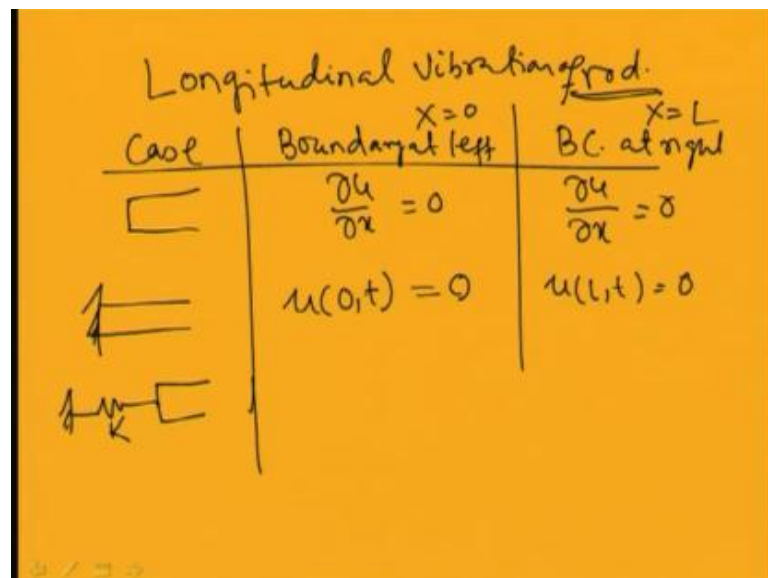 Longitudinal Vibration of rod.
x=0 x=L
Case Boundary at left BC. at right
∂u/∂x = 0 ∂u/∂x = 0
u(0,t) = 0 u(l,t) = 0
K